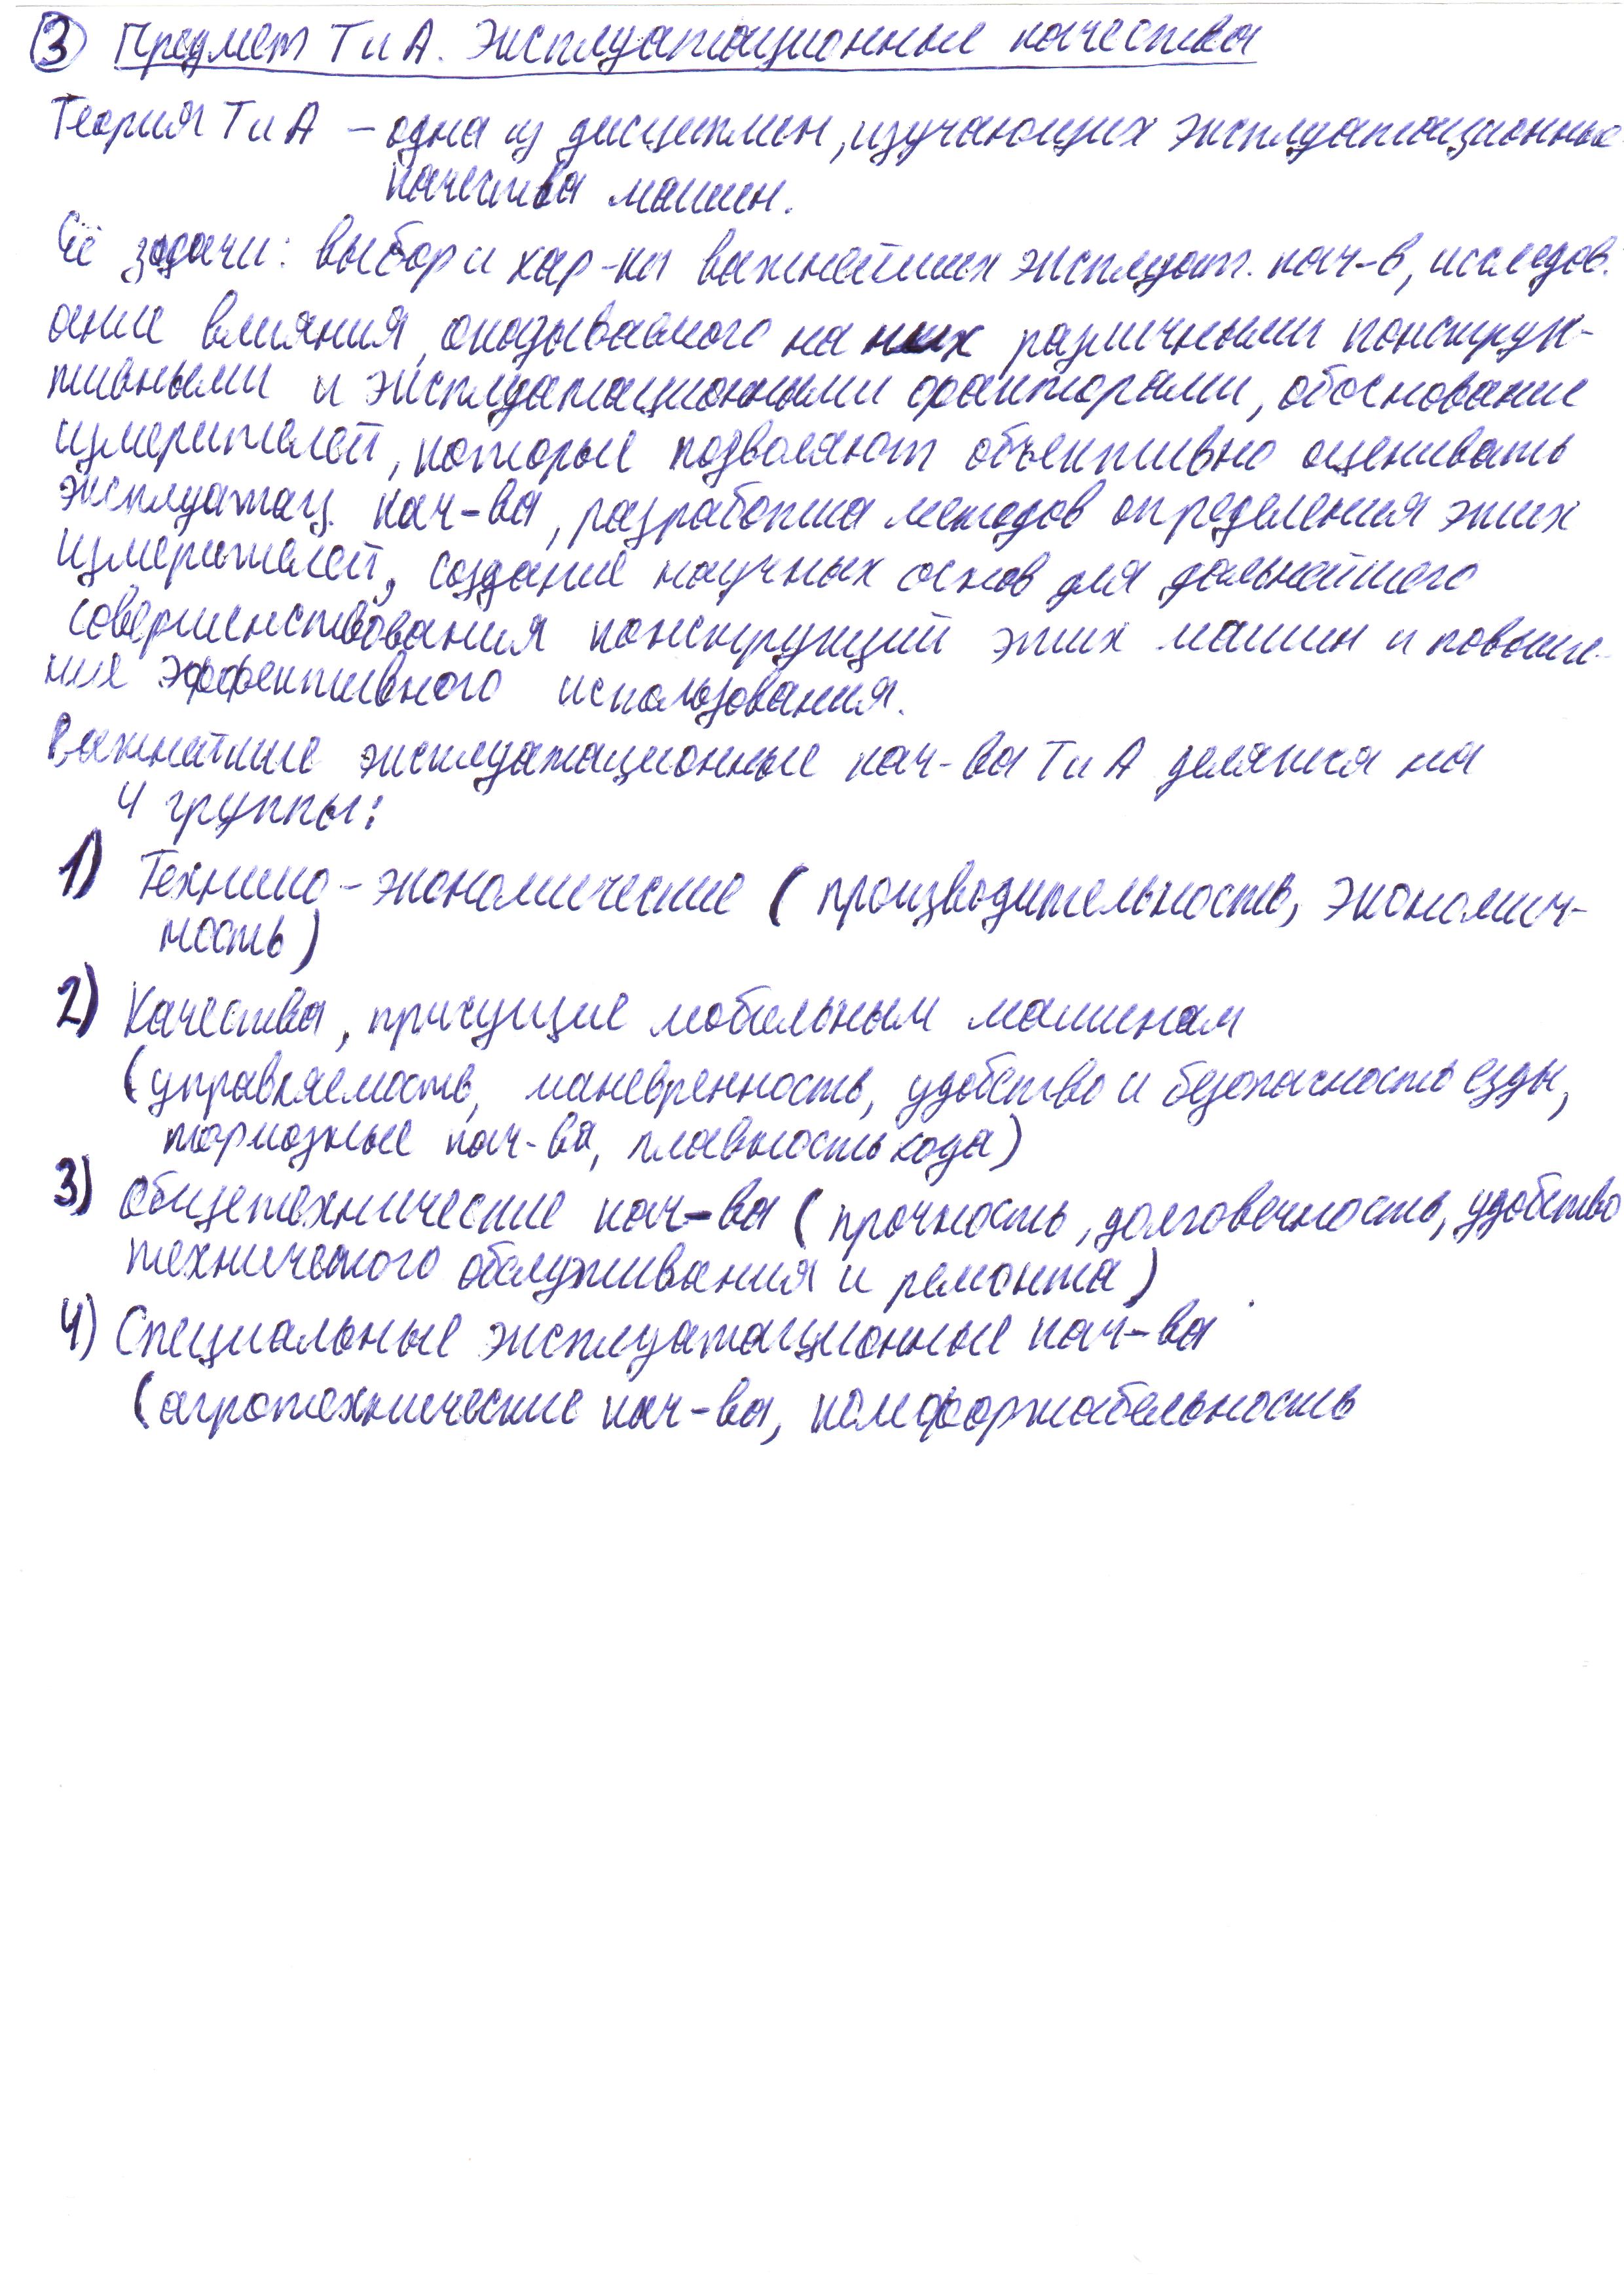 ③ Предмет Т и А. Эксплуатационные качества
Теория Т и А – одна из дисциплин, изучающих эксплуатационные
качества машин.
Её задачи: выбор и хар-ки важнейших эксплуат. кач-в, исследов.
ание влияния, оказываемого на них различными конструк-
тивными и эксплуатационными факторами, обоснование
измерителей, которые позволяют объективно оценивать
эксплуатац. кач-ва, разработка методов определения этих
измерителей, создание научных основ для дальнейшего
совершенствования конструкций этих машин и повыше-
ния эффективного использования.
Важнейшие эксплуатационные кач-ва Т и А делятся на
4 группы:
1) Технико-экономические (производительность, экономич-
ность)
2) Качества, присущие мобильным машинам
(управляемость, маневренность, удобство и безопасность езды,
тормозные кач-ва, плавность хода)
3) Общетехнические кач-ва (прочность, долговечность, удобство
технического обслуживания и ремонта)
4) Специальные эксплуатационные кач-ва
(агротехнические кач-ва, комфортабельность